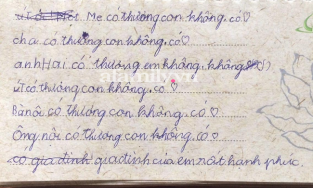 Mẹ có thương con không. có ♡
cha có thương con không. có ♡
anh Hai có thương em không. không
út có thương con không. có ♡
Bà nội có thương con không. có ♡
Ông nội có thương con không. có ♡
có gia đình gia đình của em rất hạnh phúc.